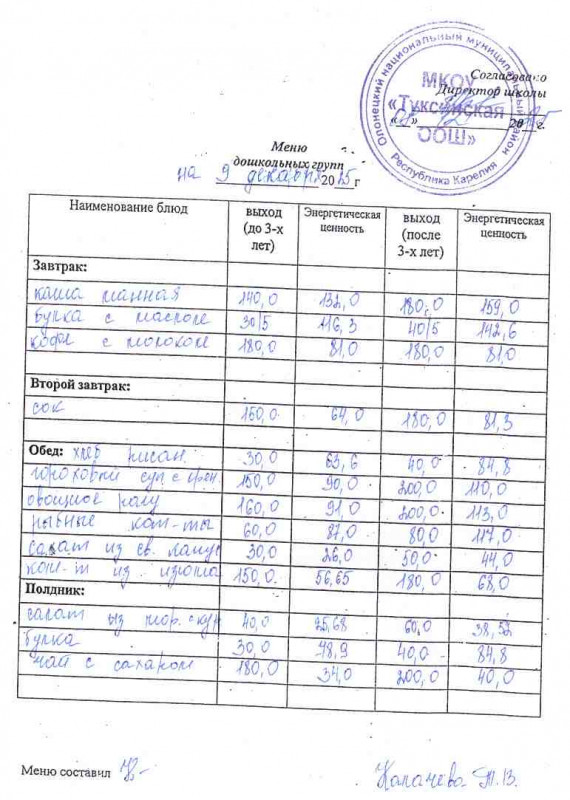 Согласовано
Директор школы
Олонецкий национальный муниципальный район
Республика Карелия
МКОУ
«Туксинская
ООШ»
Меню
дошкольных групп
на 9 декабря 2015г
Наименование блюд выход (до 3-х лет) Энергетическая ценность выход (после 3-х лет) Энергетическая ценность
Завтрак:
каша манная 140,0 132,0 180,0 159,0
булка с маслом 30/5 116,3 40/5 142,6
кофе с молоком 180,0 81,0 180,0 81,0
Второй завтрак:
сок 150,0 64,0 180,0 81,3
Обед: хлеб ржан. 30,0 63,6 40,0 84,8
гороховый суп с грен. 150,0 90,0 200,0 110,0
овощное рагу 160,0 91,0 200,0 113,0
рыбные кот-ты 60,0 87,0 80,0 117,0
салат из св. капус 30,0 26,0 50,0 44,0
ком-т из изюма 150,0 56,65 180,0 68,0
Полдник:
салат из мор. 40,0 25,68 60,0 38,52
булка 30,0 48,9 40,0 84,8
чай с сахаром 180,0 34,0 200,0 40,0
Меню составил Капачева Т.В.